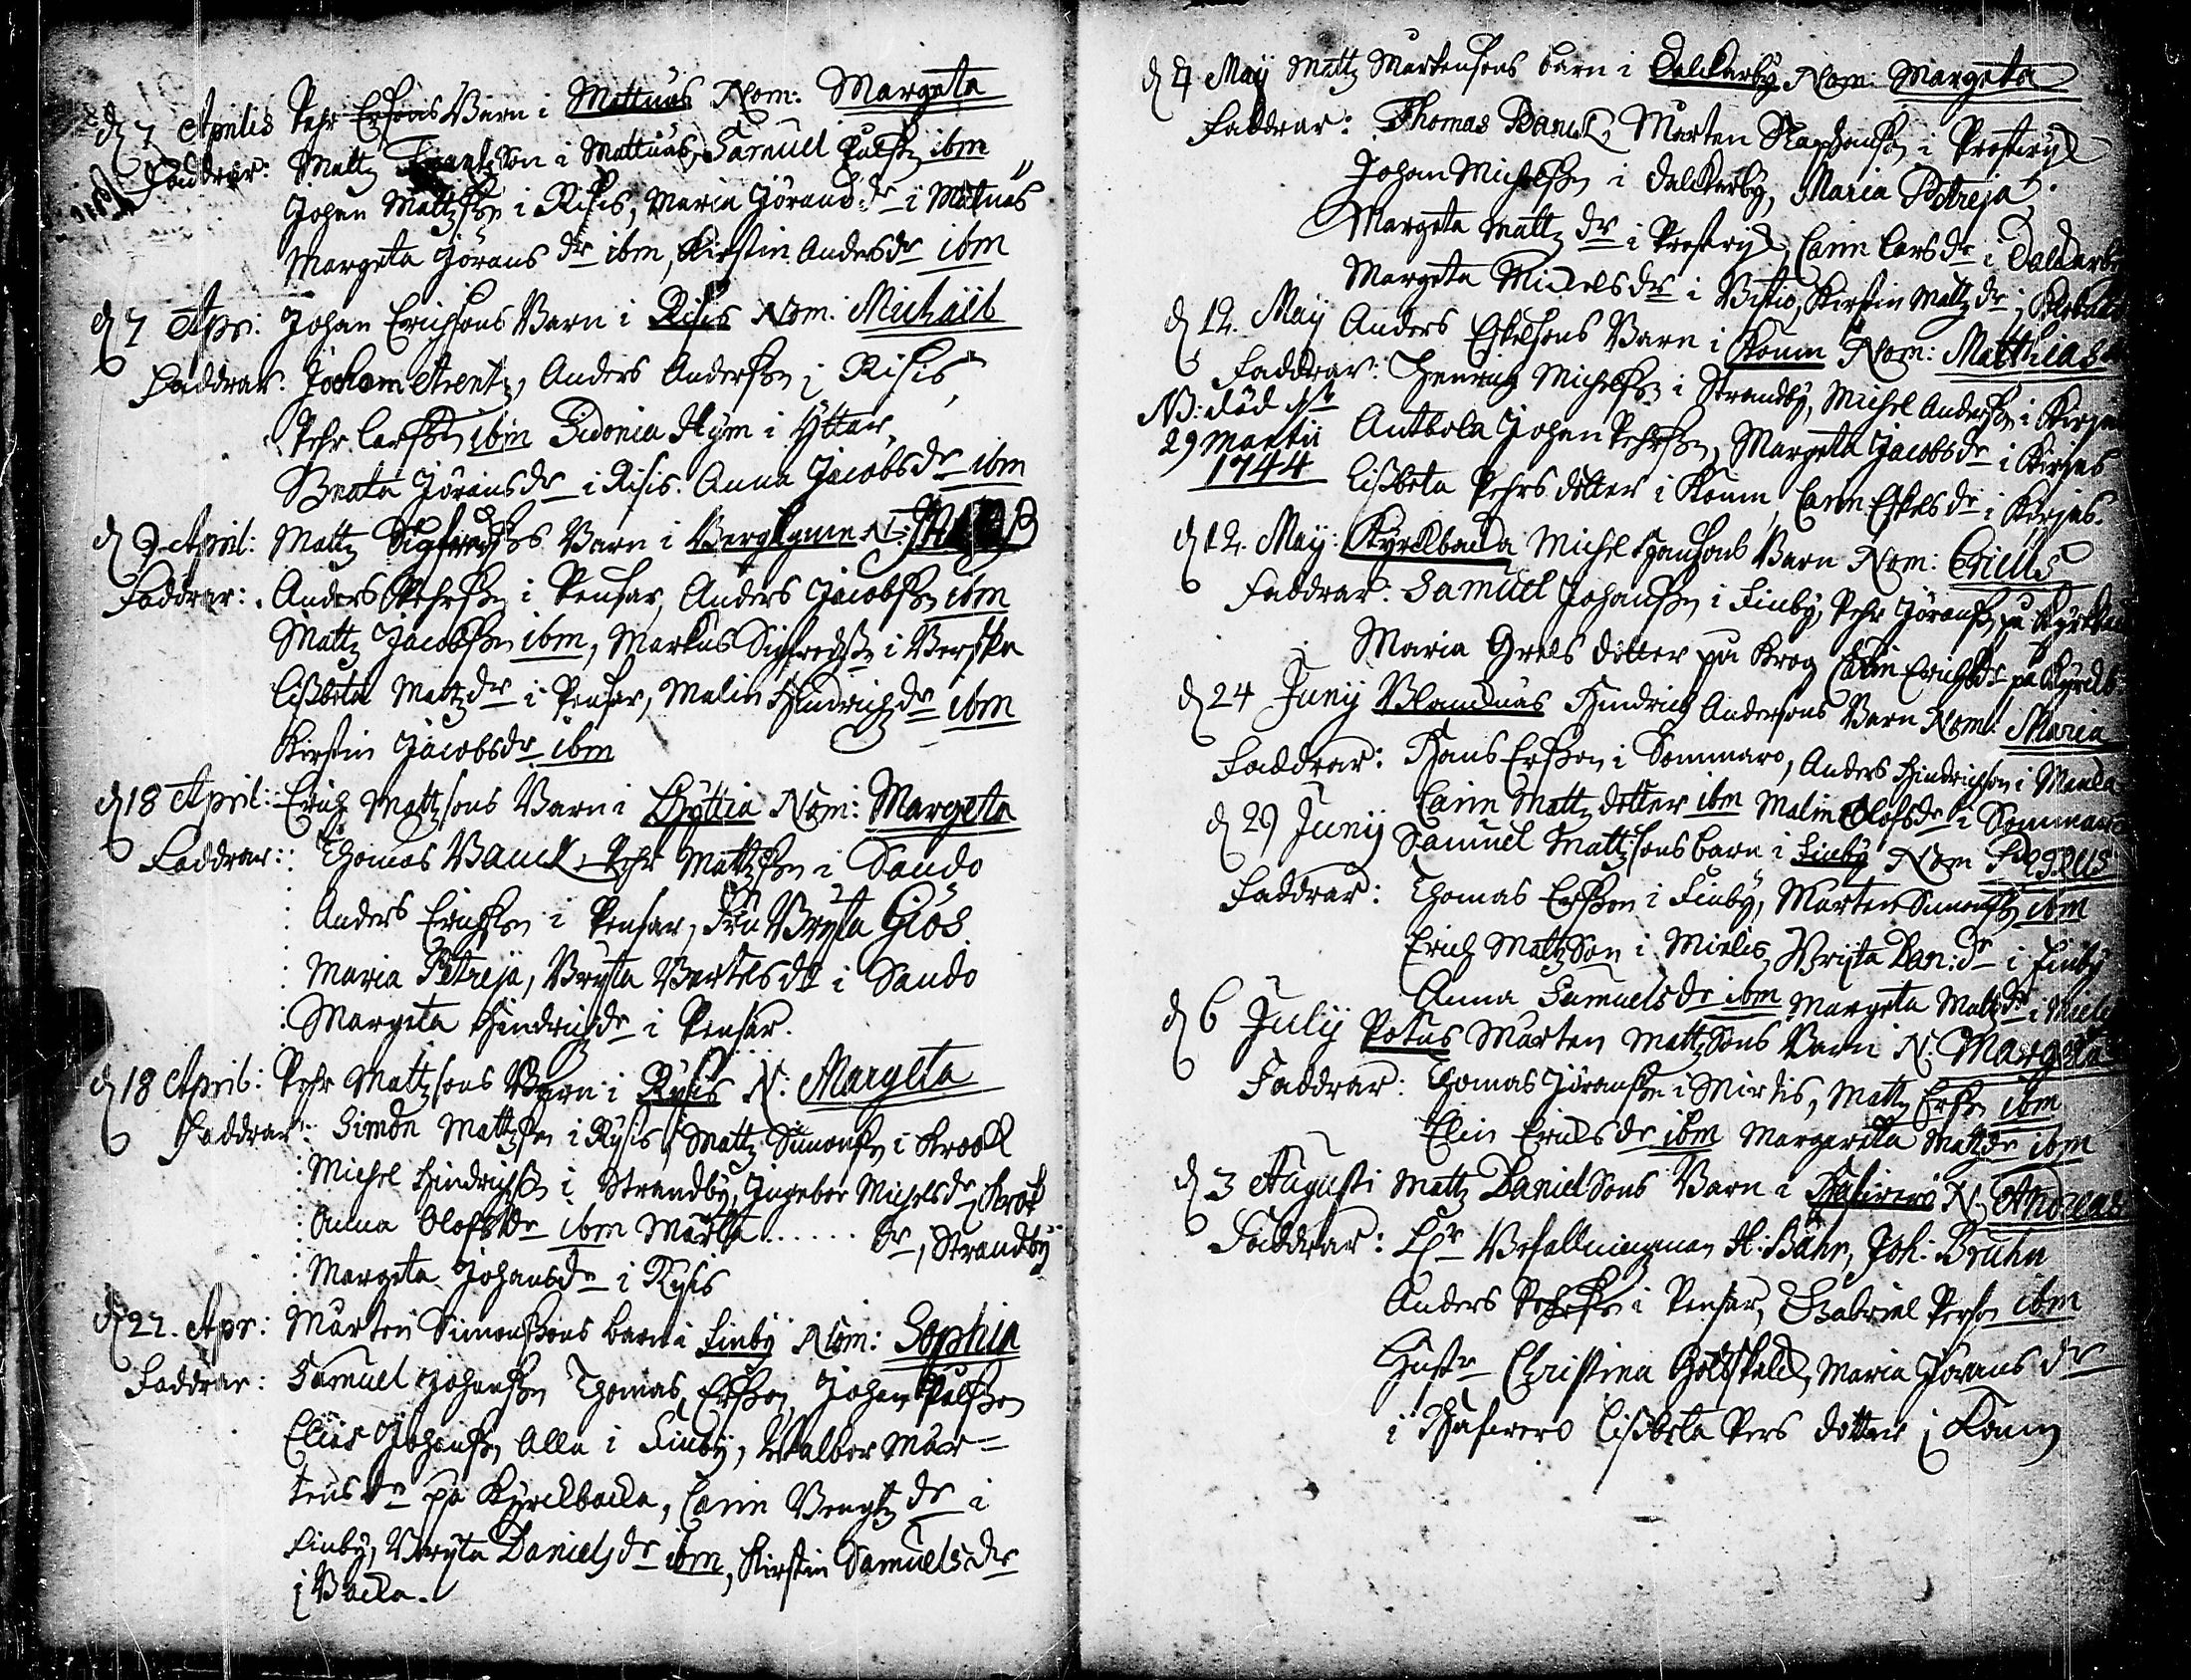 d 7 Aprilis Pehr Ersons Barn i Mattnäs Nom: Margeta
Faddrar: Matz Frantzson i Mattnäs, Samuel Pålsson ibm
Johan Matzson i Risis, Maria Jörans dr i Mattnäs
Margeta Jörans dr ibm, Kirstin Anders dr ibm
d 7 Apr: Johan Erichsons Barn i Risis Nom: Michaël
Faddrar: Jochom Arentz, Anders Anderson i Risis,
Pehr Larsson ibm Sidonia Stÿm i Ytter,
Beata Jörans dr i Risis. Anna Jacobs dr ibm
d 9 April: Matz Sigfredsos Barn i Berghamn N:
Faddrar: Anders Pehrson i Pensar, Anders Jacobson ibm
Matz Jacobson ibm, Markus Sigfredsson i
Lisbeta Matz dr i Pensar, Malin Hindrichz dr ibm
Kirstin Jacobs dr ibm
d 18 April: Erich Matzsons Barn i Nom: Margeta
Faddrar: Thomas Banck, Pehr Matzson i Sando
Anders Erichson i Pensar, Fru Brijta Giös
Maria Petreja, Brijta Bertils dr i Sando
Margeta Hindrichz dr i Pensar.
d 18 April: Pehr Matzsons Barn i Rysis N: Margeta
Faddrar: Simon Matzson i Rysis, Matz Simonson i Krook
Michel Hindrichson i Strandby, Ingebor Michels dr i Krok
Anna Olofs dr ibm Marta ...... dr, Strandby
Margeta Johans dr i Rysis
d 22. Apr: Mårten Simonssons barn i Finby Nom: Sophia
Faddrar: Samuel Johanson Thomas Ersson, Johan Pålsson
Elias Johanson Alla i Finby, Walbor Mår=
tens dr på Kyrckbacka, Carin Bengtz dr i
Finby, Brijta Daniels dr ibm, Kirstin Samuels dr
i Backa.
d 4 May Matz Mårtensons barn i Dalckarby Nom: Margeta
Faddrar: Thomas Banck, Mårten Staphanson i Prostvijk
Johan Michelson i Dalckarby, Maria Petreja.
Margeta Matz dr i Prostvijk, Carin Lars dr i Dalckarby
Margeta Michels dr i, Kirstin Matz dr i
d 12. May Anders Eskelsons Barn i Konn Nom: Matthias
Faddrar: Henrich Michelson i Strandby, Michel Anderson i Kirjas
NB: död d
29 Martii
1744
Antbola Johan Pehrson, Margeta Jacobs dr i Kirjas
Lisbeta Pehrs dotter i Konn, Carin Eskels dr i Kirjas.
d 12. May: Kyrckbacka Michel Hansons Barn Nom: Ericus
Faddrar: Samuel Johanson i Finby, Pehr Jöranson på Kyrkbacka
Maria Grels dotter på Krog Carin Erichs dr på Kyrckb
d 24 Junij Wlandnäs Hindrich Andersons Barn Nom: Maria
Faddrar: Hans Ersson i Sommaro, Anders Hindrichson i
Carin Matz dotter ibm Malin Olofs dr i Sommaro
d 29 Junij Samuel Matzsons barn i Finby Nom
Faddrar: Thomas Ersson i Finby, Mårten Simonson ibm
Erich Matzson i Mielis, Brijta Dan: dr i Finby
Anna Samuels dr ibm Margeta Matz dr i Mielis
d 6 Julij Potus Mårten Matzsons Barn N: Margeta
Faddrar: Thomas Jöranson i Mielis, Matz Erson ibm
Elin Erichs dr ibm Margareta Matz dr ibm
d 3 Augusti Matz Danielsons Barn i Hafwerö N: Andreas
Faddrar: Hr Befallningsman H: Bähr, Joh: Bruhn
Anders Pehrson i Pensar, Gabriel Person ibm
Hustr Christina, Maria Jörans dr
i Hafwero Lisbeta Pers dotter i Konn